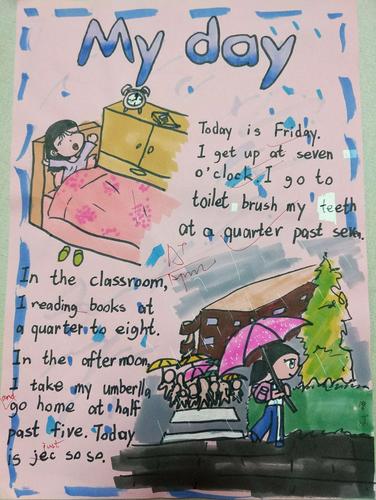 My day
Today is Friday.
I get up at seven
o'clock. I go to
toilet brush my teeth
at a quarter past seven.
In the classroom,
I reading books at
a quarter to eight.
In the afternoon,
I take my umberlla
and
go home at half
past five. Today
just
is jec so so.